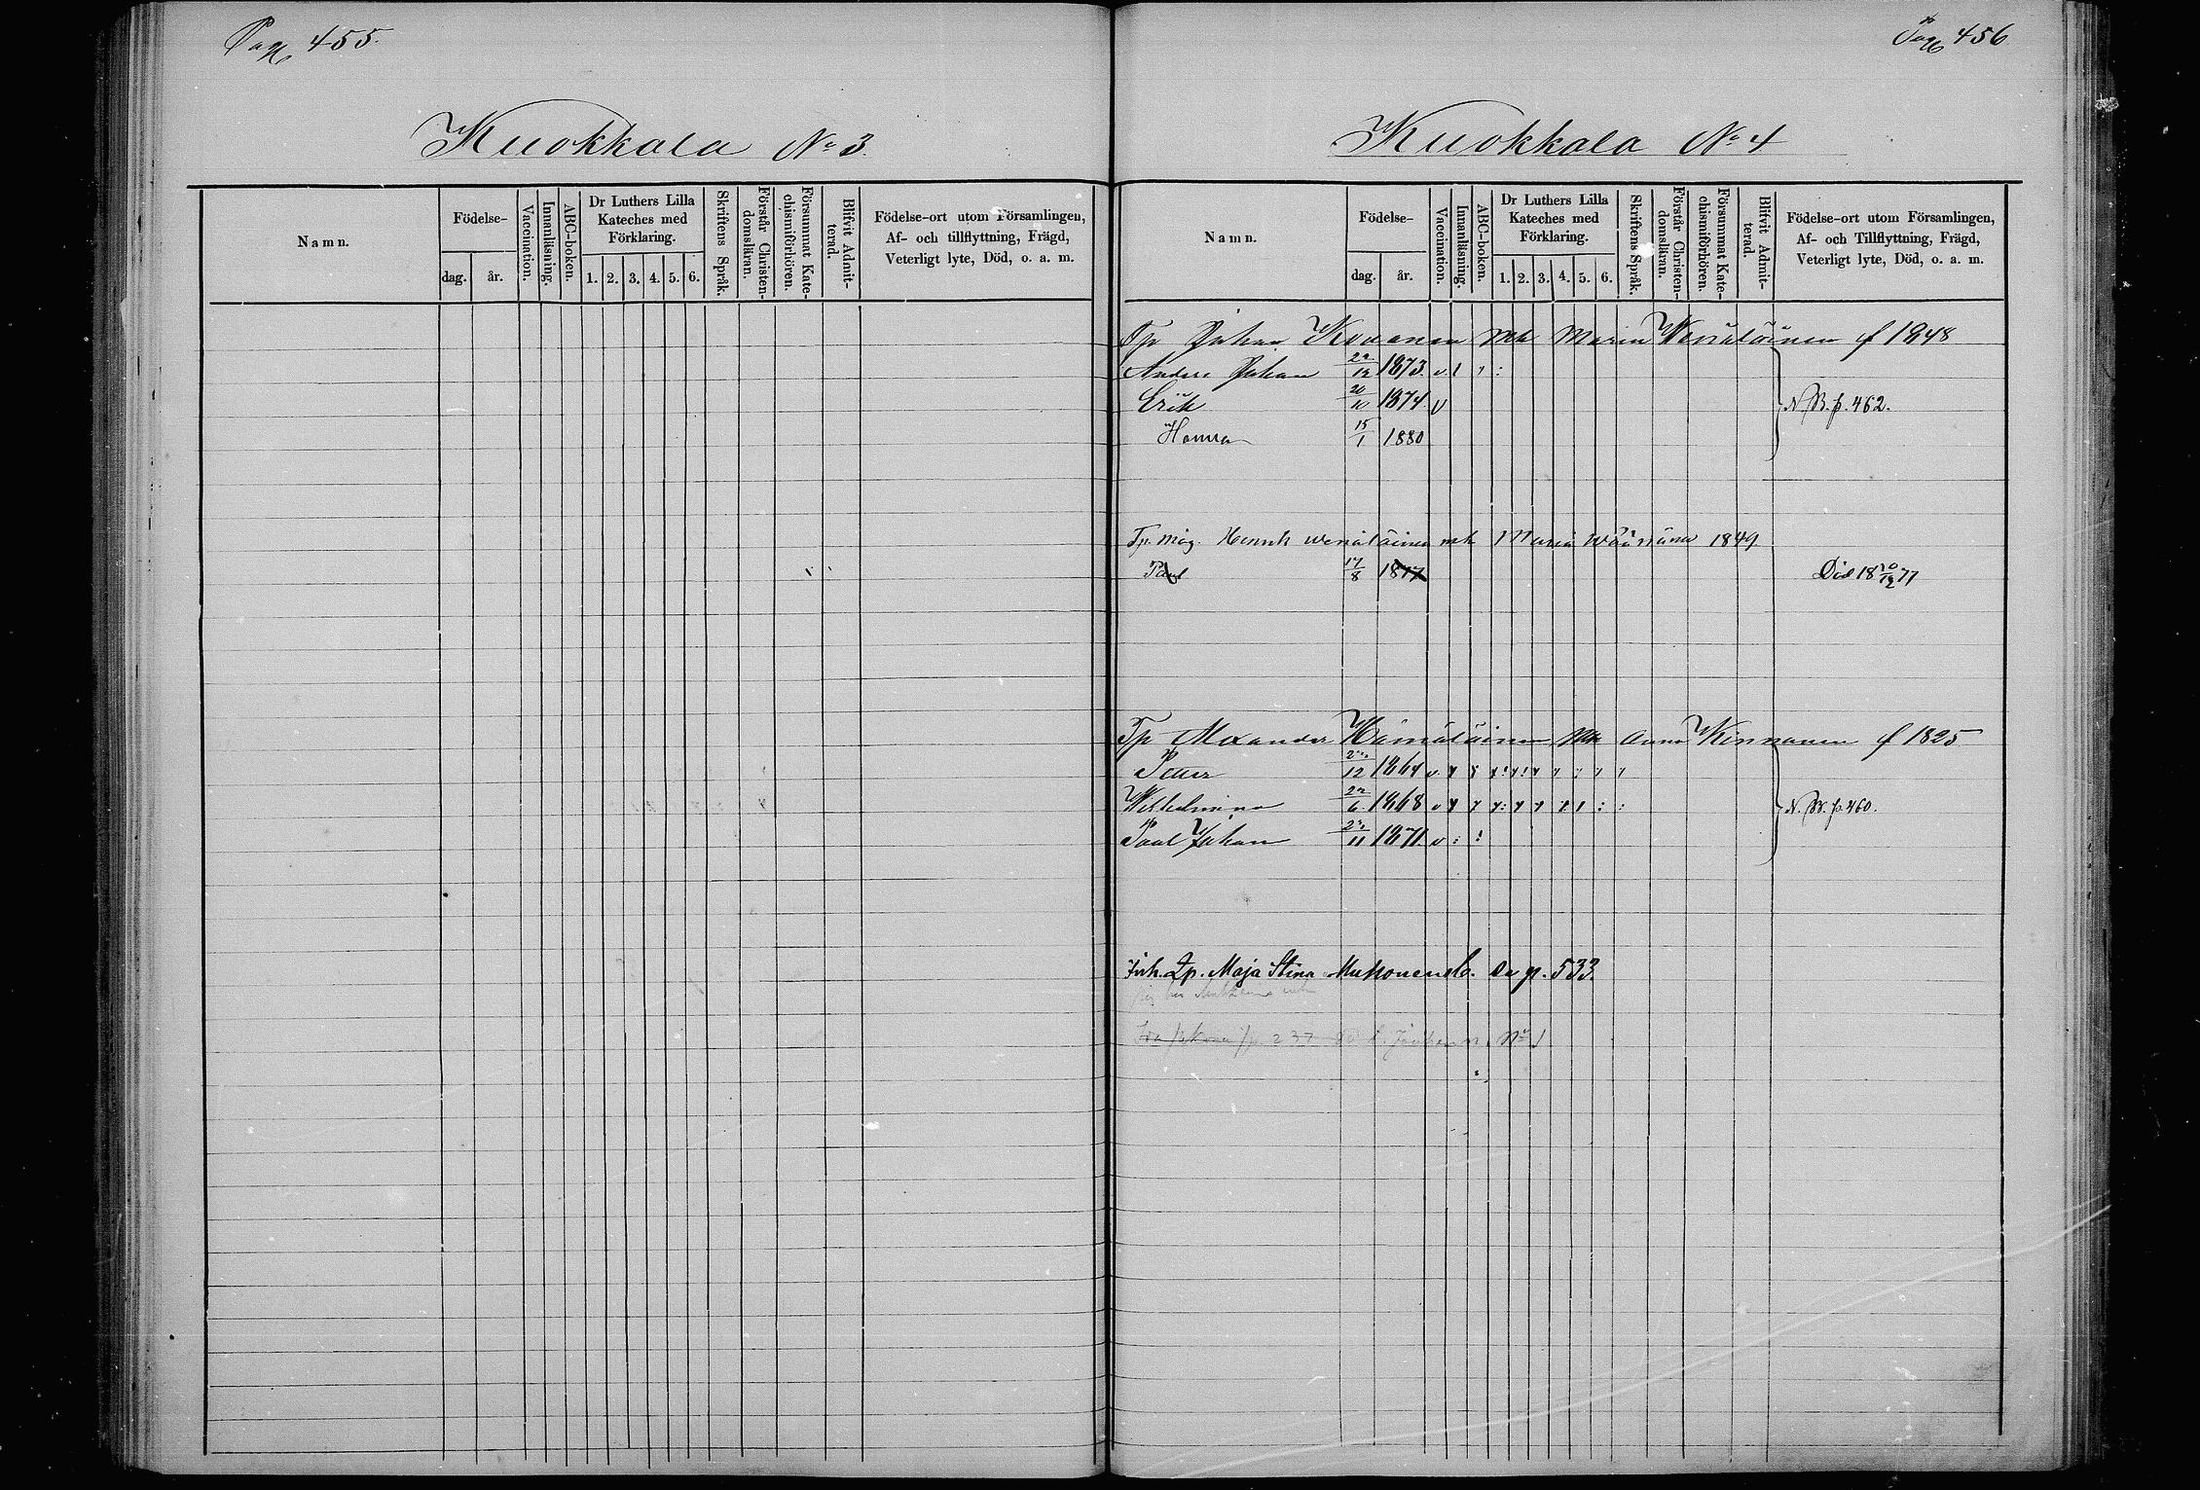 Pag 455.
Kuokkala No 3.
Namn.
Födelse-
dag.
år.
Vaccination.
Innanläsning.
ABC-boken.
Dr Luthers Lilla
Kateches med
Förklaring.
1. 2. 3. 4. 5. 6.
Skriftens Språk.
Förstår Christen-
domsläran.
Försummat Kate-
chismiförhören.
Blifvit Admit-
terad.
Födelse-ort utom Församlingen,
Af- och tillflyttning, Frägd,
Veterligt lyte, Död, o. a. m.
Pag 456
Kuokkala No 4
Namn.
Födelse-
dag.
år.
Vaccination.
Innanläsning.
ABC-boken.
Dr Luthers Lilla
Kateches med
Förklaring.
1. 2. 3. 4. 5. 6.
Skriftens Språk.
Förstår Christen-
domsläran.
Försummat Kate-
chismiförhören.
Blifvit Admit-
terad.
Födelse-ort utom Församlingen,
Af- och Tillflyttning, Frägd,
Veterligt lyte, Död, o. a. m.
Tp Johan Kovanen Mh Maria Wenäläinen f 1848
Anders Johan 12 1873. v
Erik 20/10 1874. v
N. B. p. 462.
Hanna 15/1 1880
Tp. måg. Henrik Wenäläinen mh Maria Väänänen 1849
Paul 17/8 1877 Död 18 10/12 77
Tp Alexander Hämäläinen Mh Anna Kinnanen f 1825
Petter 12 1864 v
Wilhelmina 22/6 1868 v
N. B. p. 460.
Paul Johan 11 1871 v
Inh. Lp. Maja Stina Mukonens b. Se p. 533.
237 No 1